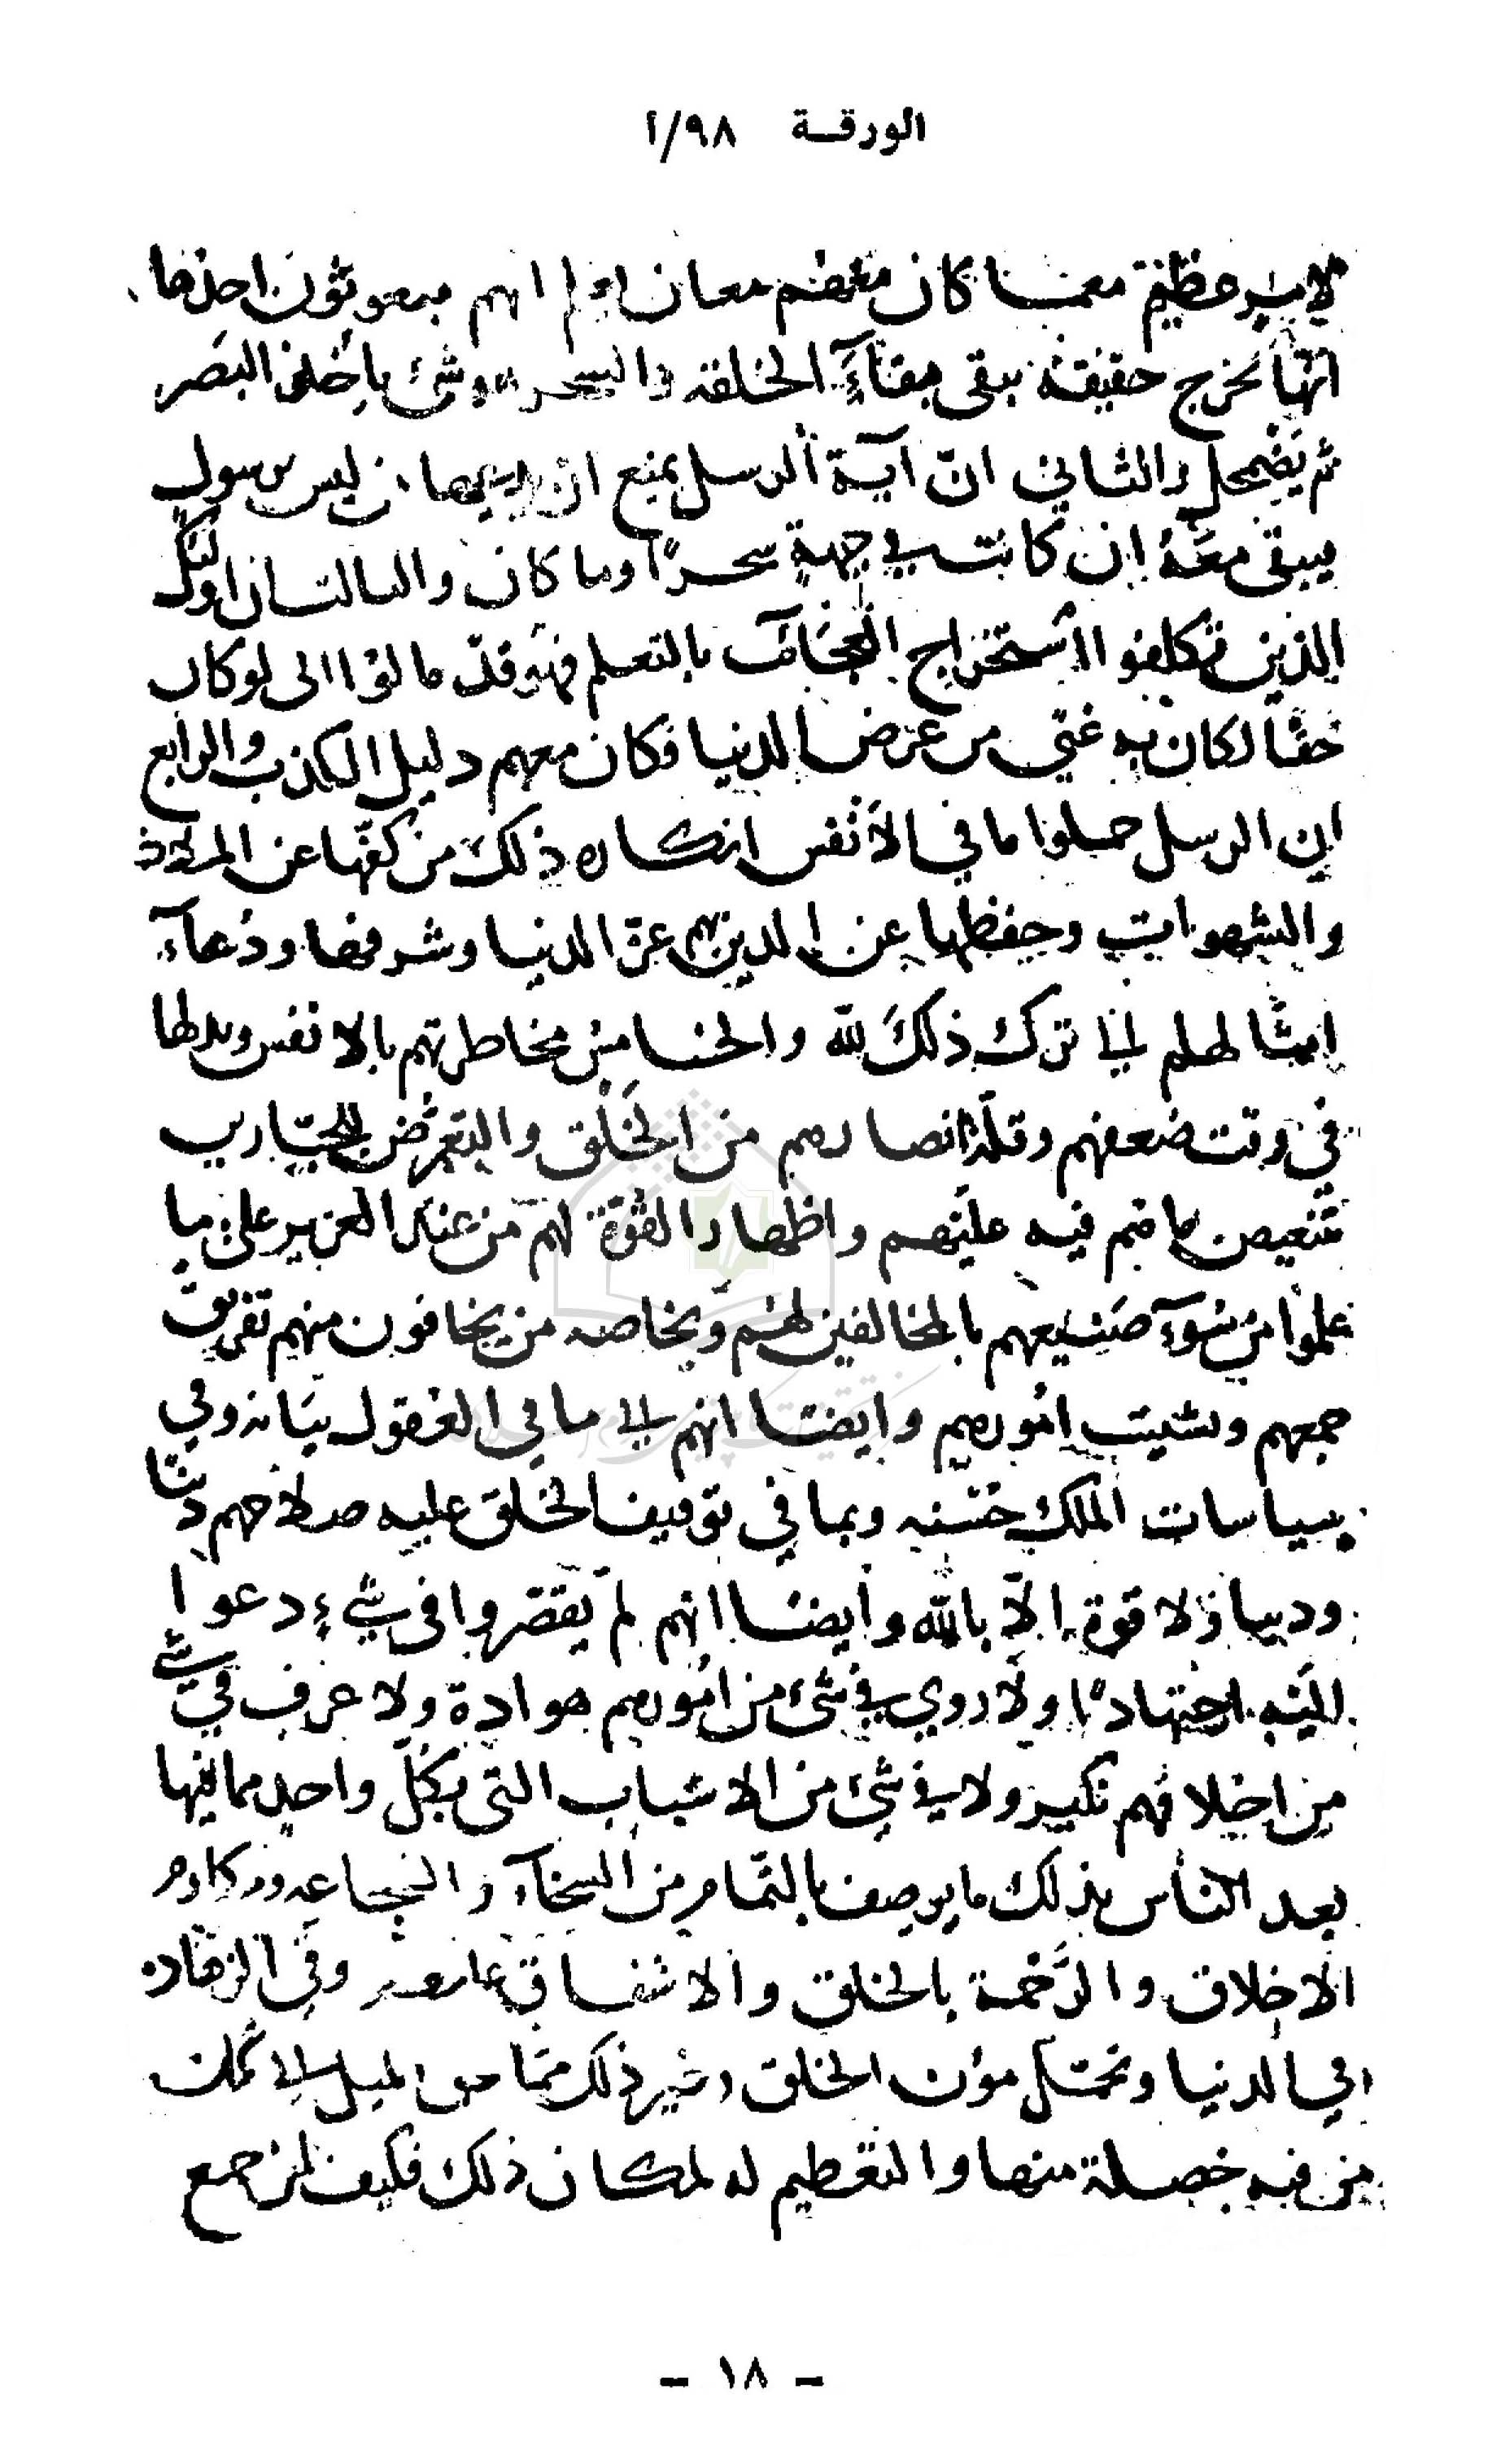 الورقة ٩٨/أ
كان معهم معان انهم مبعوثون احدها
انها تخرج حقيقة تبقى بقاء الخلقه والسحر هو شئ ياخذ البصر
ثم يضمحل والثاني انّ آية الرسل يمنع ان ليس برسول
يبقى معه ان كانت في جهة سحرًا وما كان والثالث ان اولئك
الذين تكلفوا استخراج بالتعلم فهو قد الى لو كان
حقا لكان به غنى من عرض الدنيا فكان معهم دليل الكذب والرابع
ان الرسل حملوا ما في الأنفس انكاره ذلك من كفّها عن الملاذ
والشهوات وحفظها عن الدين بهم عزّ الدنيا وشرفها ودعآء
الى ترك ذلك لله والخامس مخاطرتهم بالانفس وبذلها
في وقت ضعفهم وقلة انصارهم من الخلق والتعرّض للجبّارين
بتنغيص ما هم فيه عليهم واظهار القوة لهم من عند العزيز على ما
علموا من سوء صنيعهم بالمخالفين لهم وبخاصه من يخافون منهم تفريق
جمعهم وتشتيت امورهم وايضا انهم الى ما في العقول بيانه وفي
سياسات الملك حسنه وبما في توقيف الخلق عليه صلاحهم دينا
ودنيا ولا قوة الاّ بالله وأيضا انهم لم يقصروا في شيء دعوا
اليه اجتهادًا ولا روي في شئ من امورهم هوادة ولا عرف في شئ
من اخلاقهم نكير ولا في شئ من الاسباب التي بكلّ واحد مما فيها
بعد الناس بذلك ما يوصف بالتمام من السخآء والشجاعه ومكارم
الاخلاق والرَّحمة بالخلق والاشفاق عليهم وفي الزهاده
في الدنيا وتحمّل مؤن الخلق وغير ذلك ممّا حق الميل الى
من فيه خصلة منها والتعظيم له لمكان ذلك فكيف لمن جمع
- ١٨ -